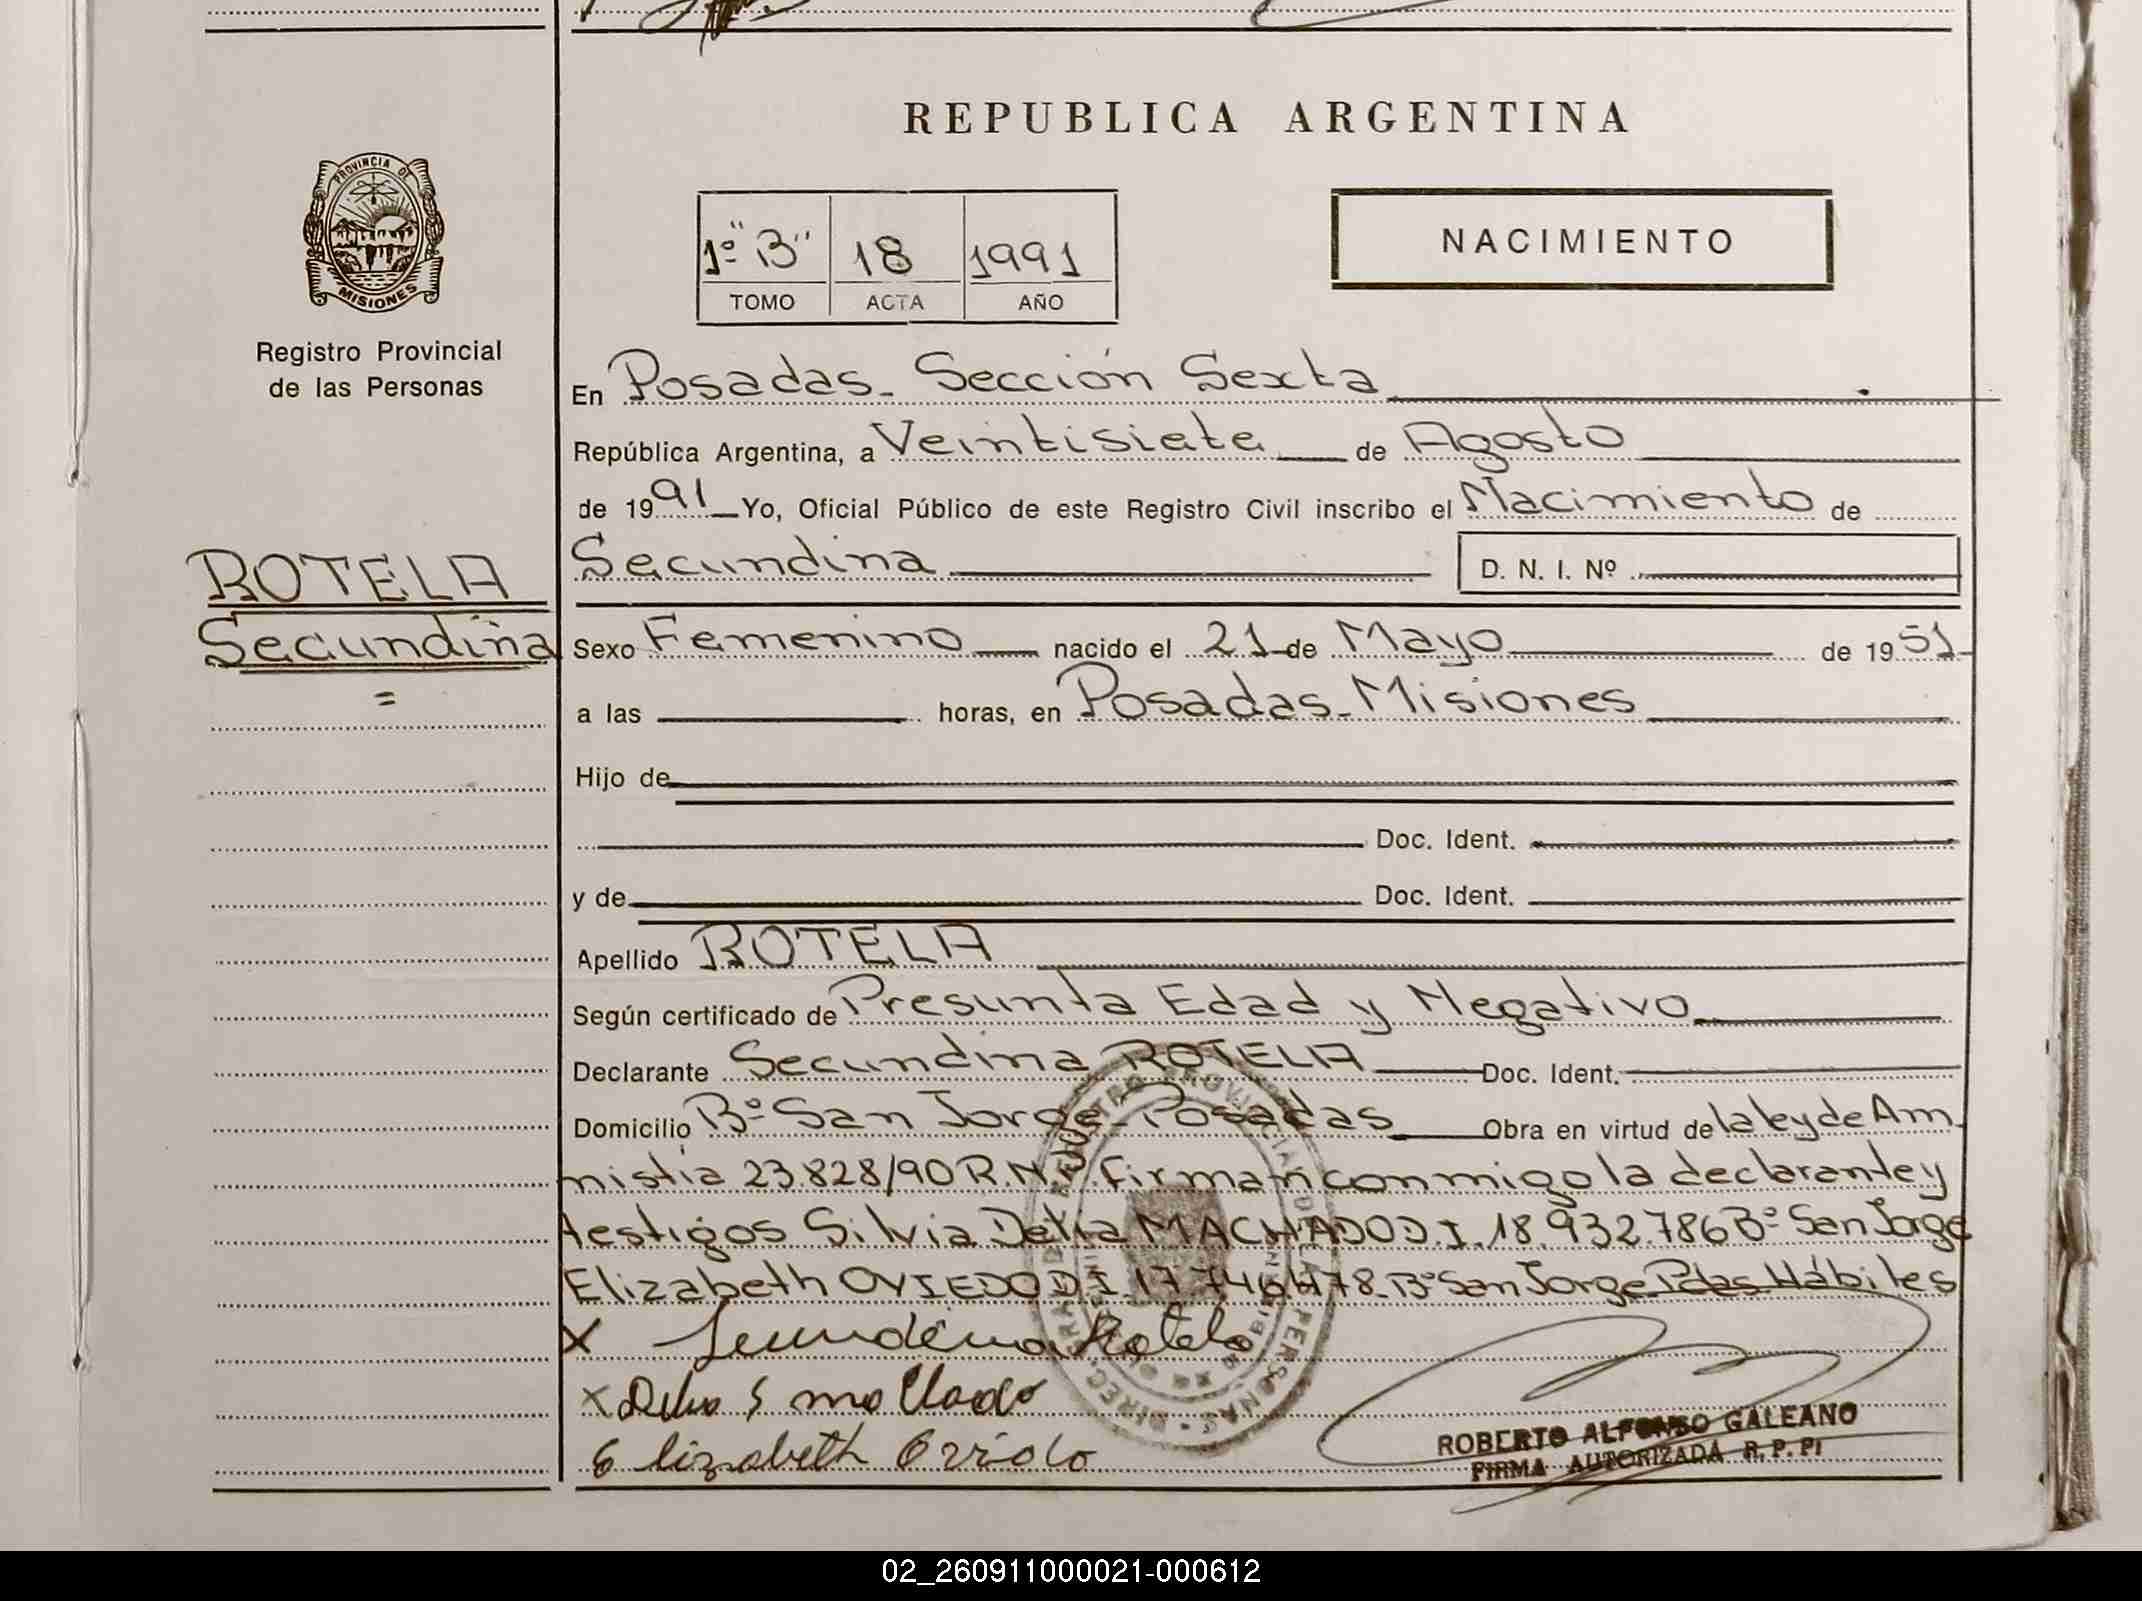 REPUBLICA ARGENTINA
PROVINCIA DE
MISIONES
Registro Provincial
de las Personas
1º "B" 18 1991
TOMO ACTA AÑO
NACIMIENTO
En Posadas - Sección Sexta
República Argentina, a Veintisiete de Agosto
de 1991 Yo, Oficial Público de este Registro Civil inscribo el Nacimiento de
ROTELA
Secundina
Secundina D. N. I. Nº
Sexo Femenino nacido el 21 de Mayo de 1951
a las horas, en Posadas - Misiones
Hijo de
Doc. Ident.
y de Doc. Ident.
Apellido ROTELA
Según certificado de Presunta Edad y Negativo
Declarante Secundina ROTELA Doc. Ident.
Domicilio Bº San Jorge - Posadas Obra en virtud de la ley de Am
nistía 23.828/90 R.N.P. Firman conmigo la declarante y
testigos Silvia Delia MACHADO D.I. 18.932.786 Bº San Jorge
Elizabeth OVIEDO D.I. 17.746.478 Bº San Jorge Pdas Hábiles
X Secundina Rotela
X
Elizabeth Oviedo
ROBERTO ALFONSO GALEANO
FIRMA AUTORIZADA R. P. P.
02_260911000021-000612